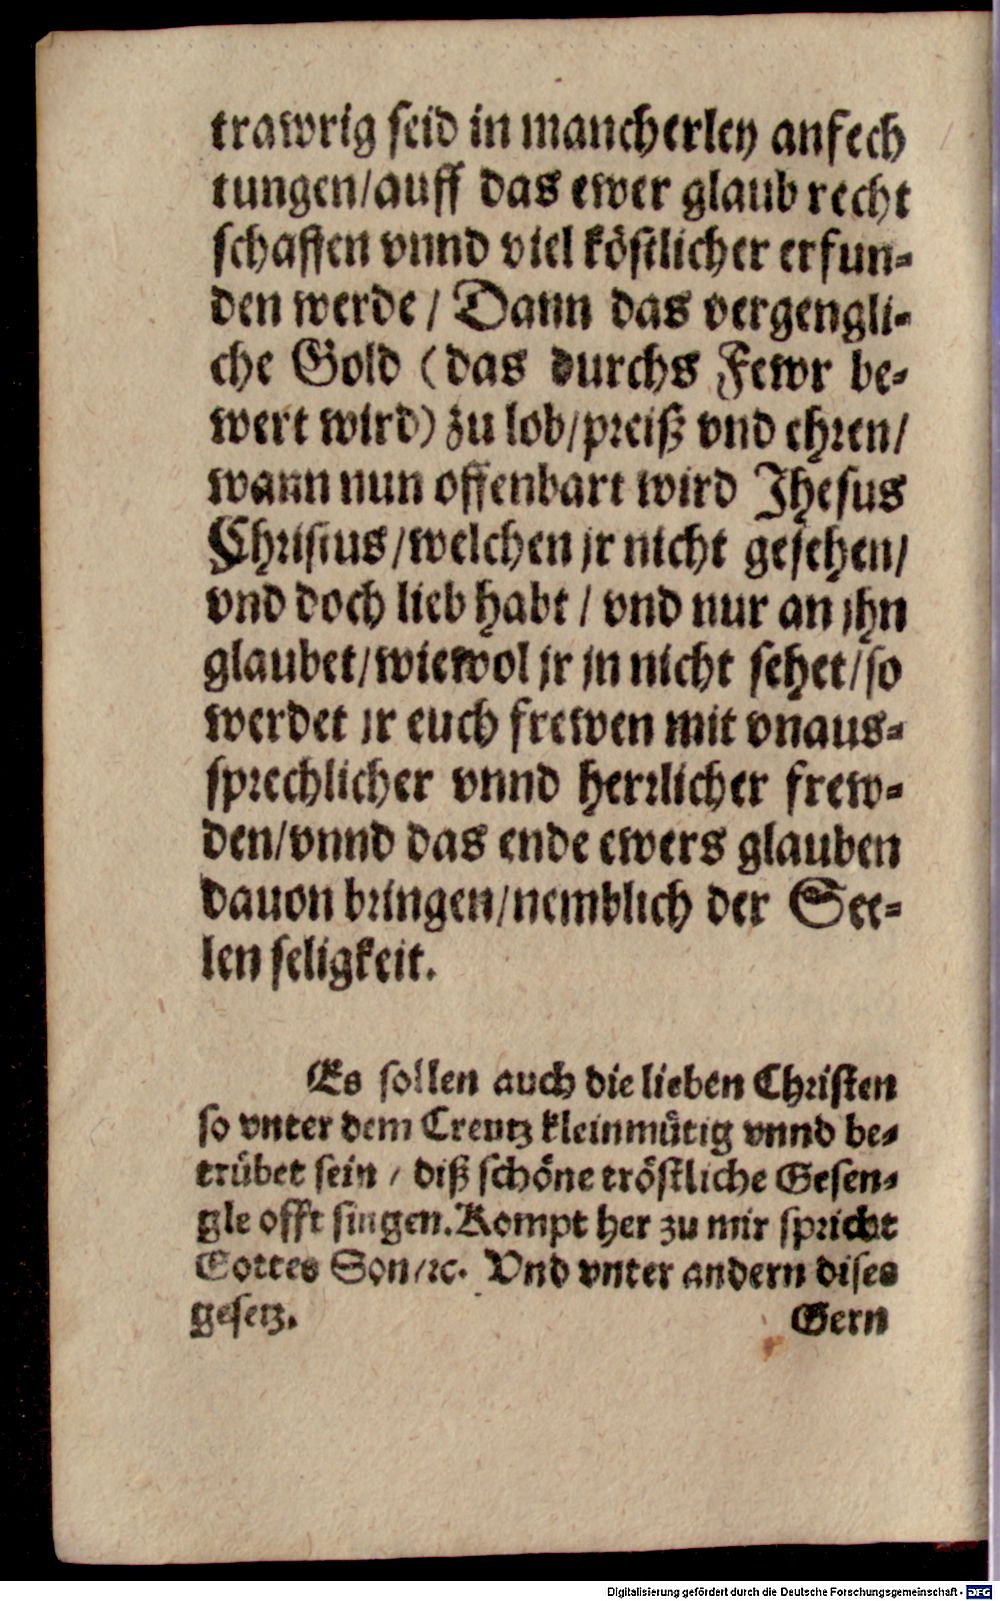 trawrig seid in mancherley anfech
tungen/auff das ewer glaub recht
schaffen vnnd viel köstlicher erfun-
den werde / Dann das vergengli-
che Gold (das durchs Fewr be-
wert wird) zu lob/preiß vnd ehren/
wann nun offenbart wird Jhesus
Christus/welchen jr nicht gesehen/
vnd doch lieb habt / vnd nur an jhn
glaubet/wiewol jr jn nicht sehet/so
werdet jr euch frewen mit vnaus-
sprechlicher vnnd herrlicher frew-
den/vnnd das ende ewers glauben
dauon bringen/nemblich der See-
len seligkeit.
Es sollen auch die lieben Christen
so vnter dem Creutz kleinmütig vnnd be-
trübet sein / diß schöne tröstliche Gesen-
gle offt singen. Kompt her zu mir spricht
Gottes Son/rc. Vnd vnter andern dises
gesetz. Gern
Digitalisierung gefördert durch die Deutsche Forschungsgemeinschaft - DFG